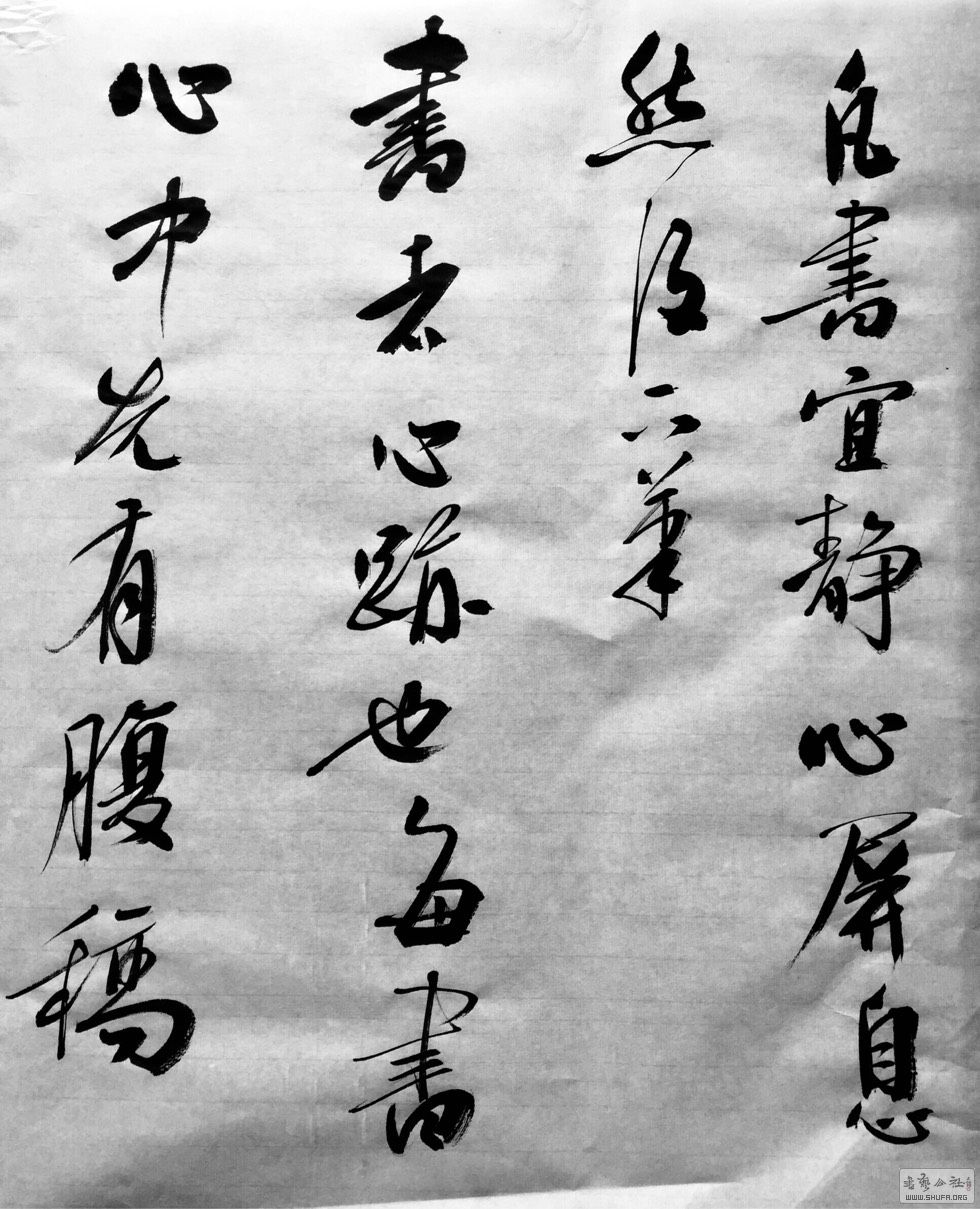 凡書宜静心屏息
然後下筆
書者心跡也每書
心中先有腹稿
书艺公社
WWW.SHUFA.ORG